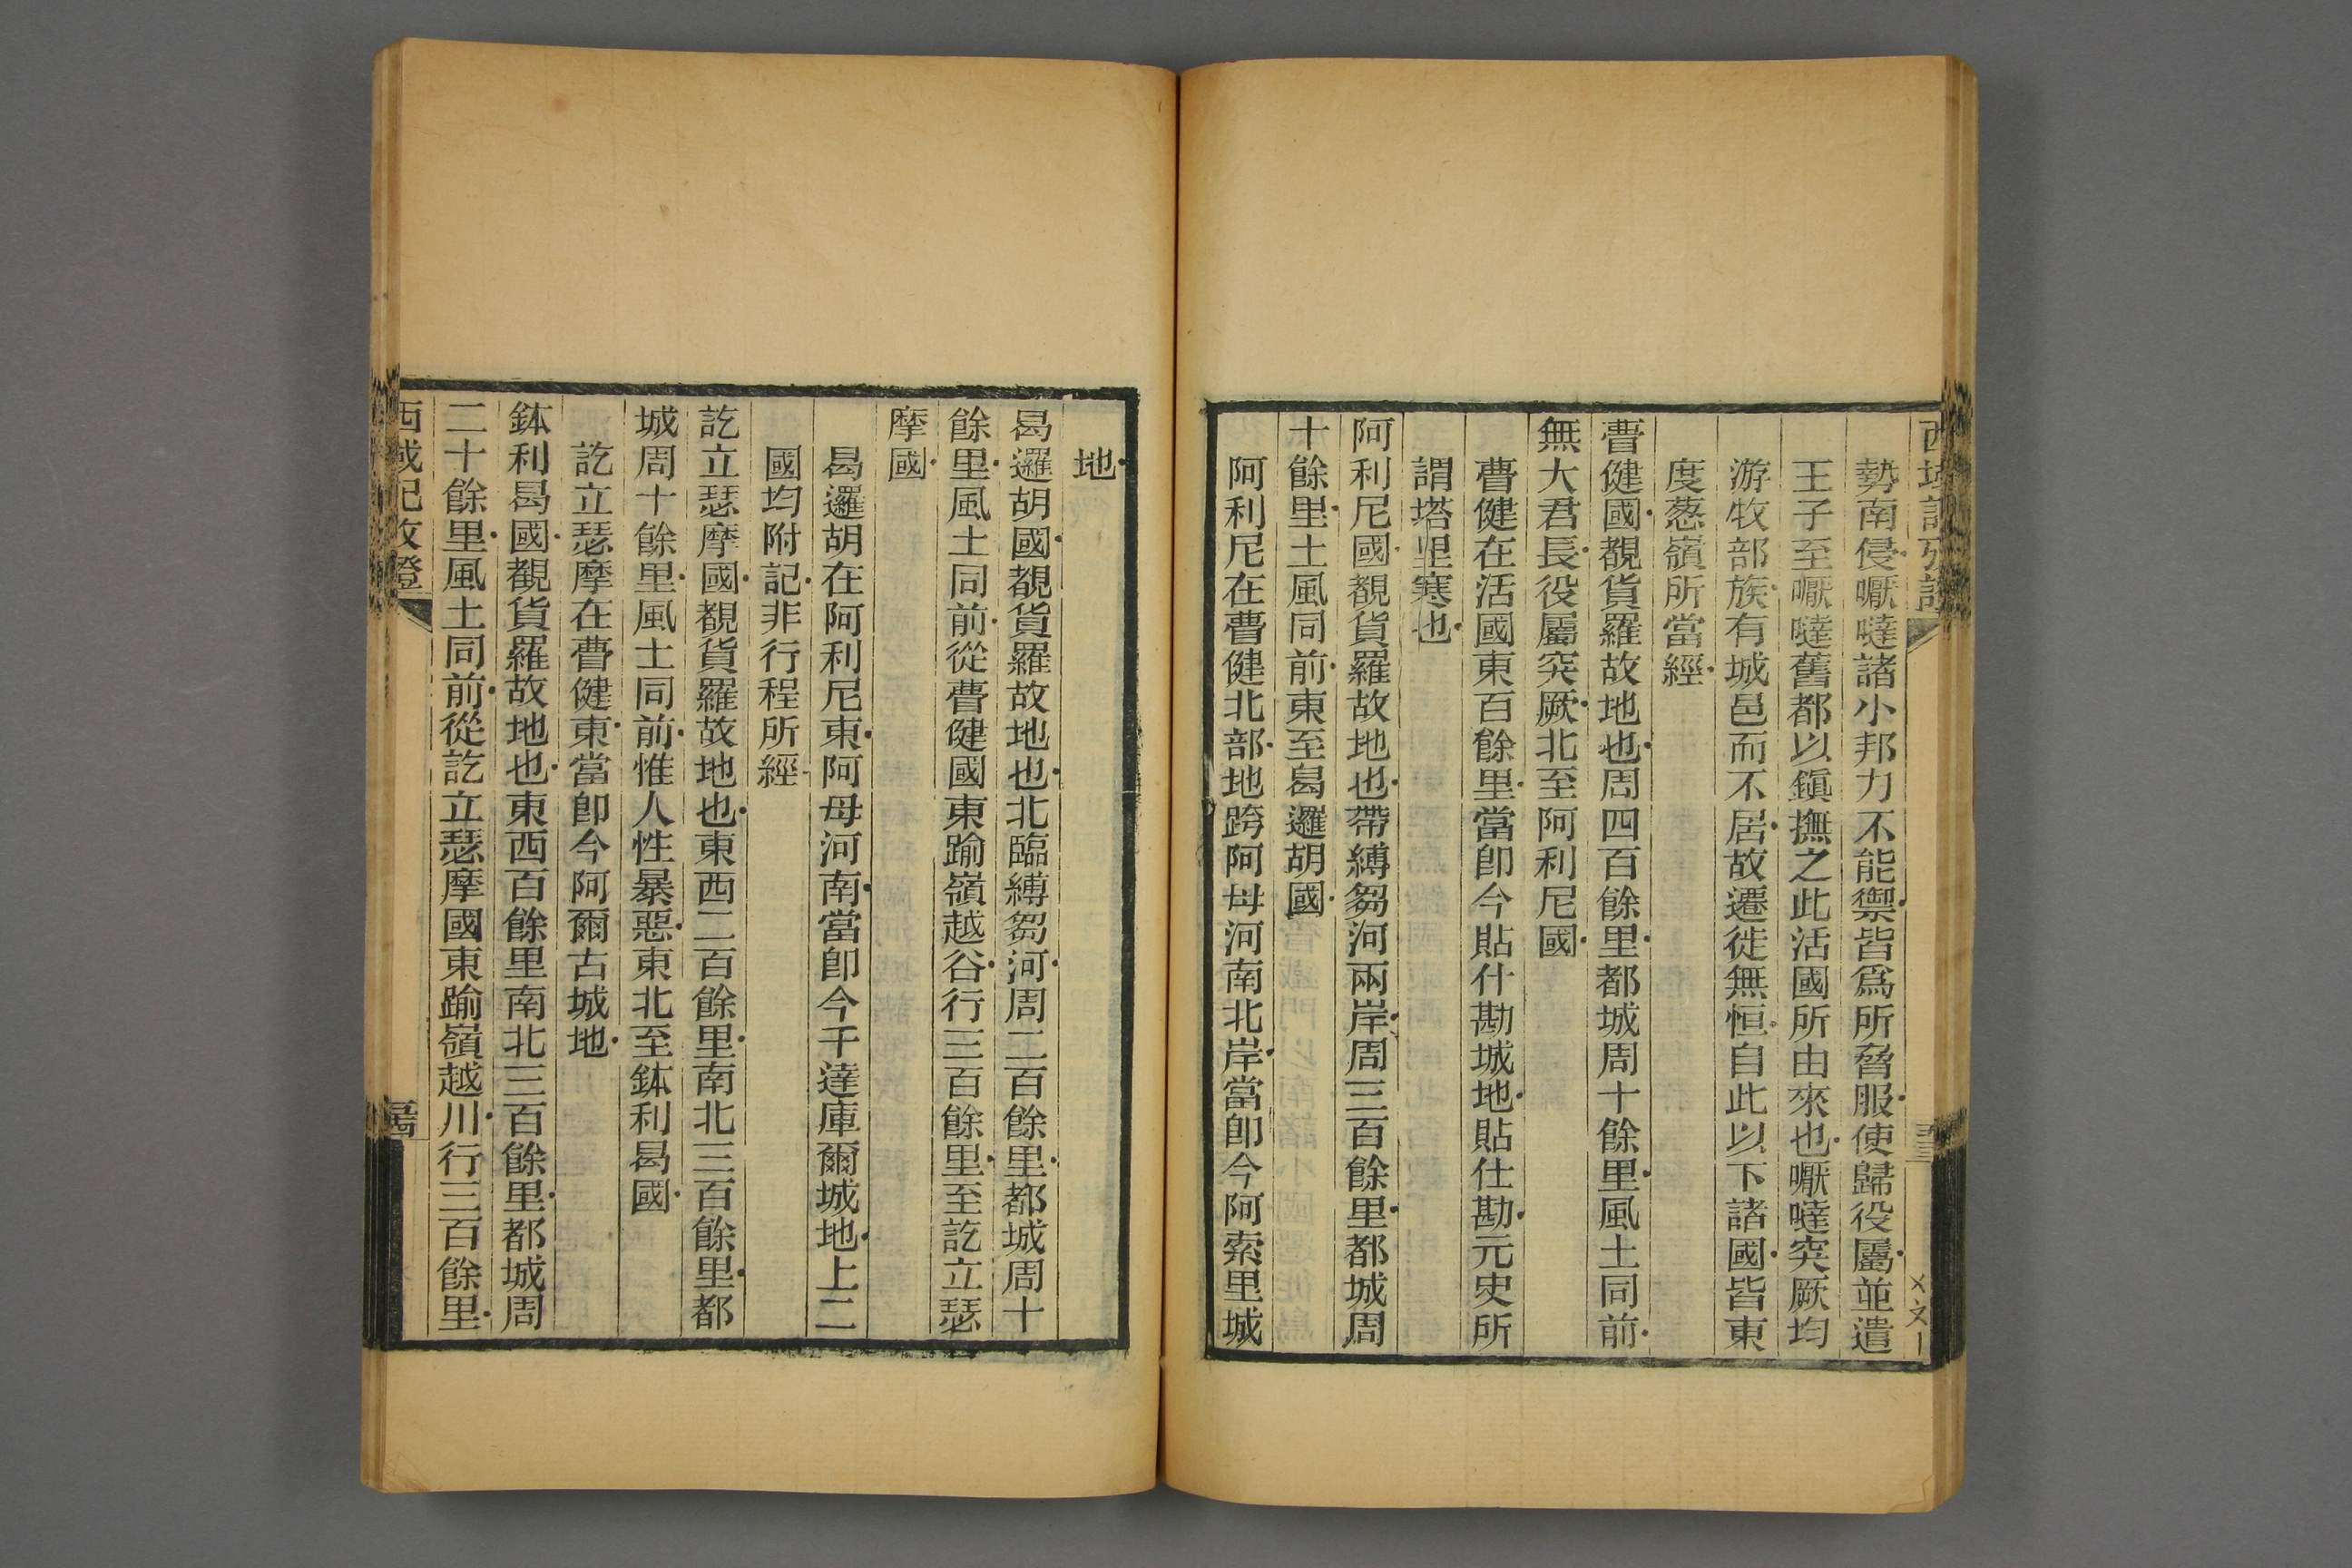 勢南侵嚈噠諸小邦力不能禦皆爲所脅服使歸役屬並遣
王子至嚈噠舊都以鎮撫之此活國所由來也嚈噠突厥均
游牧部族有城邑而不居故遷徙無恒自此以下諸國皆東
度葱嶺所當經
瞢健國覩貨羅故地也周四百餘里都城周十餘里風土同前
無大君長役屬突厥北至阿利尼國
瞢健在活國東百餘里當卽今貼什勘城地貼仕勘元史所
謂塔里寒也
阿利尼國覩貨羅故地也帶縛芻河兩岸周三百餘里都城周
十餘里土風同前東至曷邏胡國
阿利尼在瞢健北部地跨阿母河南北岸當卽今阿索里城
地
曷邏胡國覩貨羅故地也北臨縛芻河周二百餘里都城周十
餘里風土同前從瞢健國東踰嶺越谷行三百餘里至訖立瑟
摩國
曷邏胡在阿利尼東阿母河南當卽今千達庫爾城地上二
國均附記非行程所經
訖立瑟摩國覩貨羅故地也東西二百餘里南北三百餘里都
城周十餘里風土同前惟人性暴惡東北至鉢利曷國
訖立瑟摩在瞢健東當卽今阿爾古城地
鉢利曷國覩貨羅故地也東西百餘里南北三百餘里都城周
二十餘里風土同前從訖立瑟摩國東踰嶺越川行三百餘里
西域記攷證